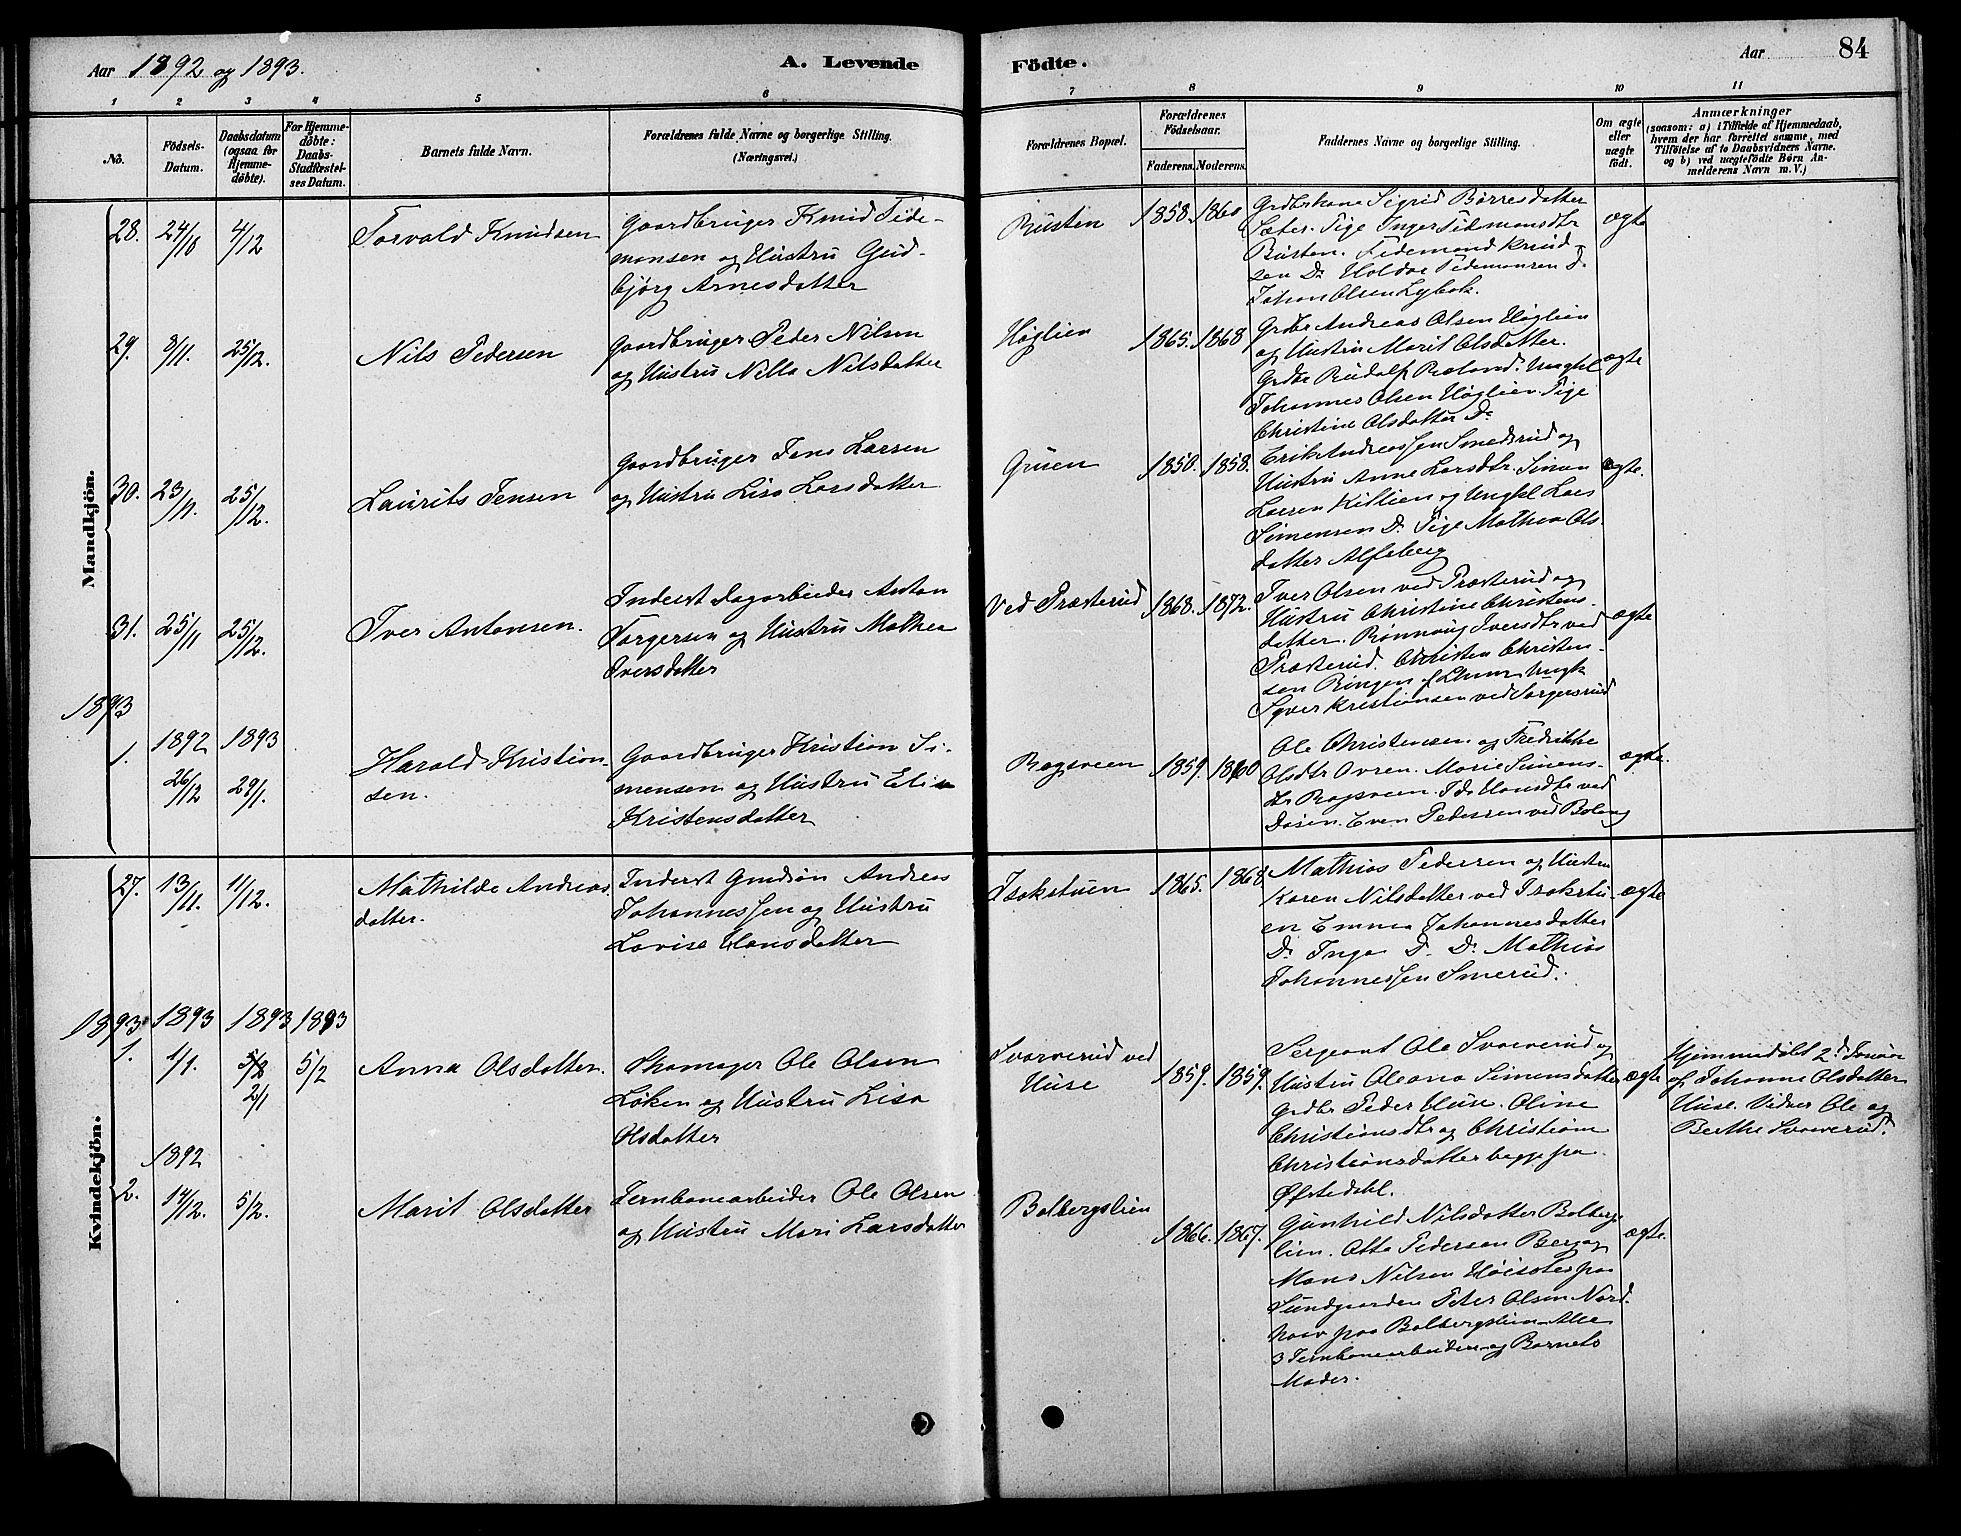 Aar 1892 og 1893.
A. Levende
Födte.
Aar
84
1 2 3 4 5 6 7 8 9 10 11
No.
Födsels-
Datum.
Daabsdatum
(ogsaa for
Hjemme-
döbte).
For Hjemme-
döbte:
Daabs-
Stadfæstel-
ses Datum.
Barnets fulde Navn.
Forældrenes fulde Navne og borgerlige Stilling.
(Næringsvei.)
Forældrenes Bopæl.
Forældrenes
Födselsaar.
Faderens. Moderens.
Faddernes Navne og borgerlige Stilling.
Om ægte
eller
uægte
födt.
Anmærkninger
(saasom: a) i Tilfælde af Hjemmedaab,
hvem der har forrettet samme, med
Tilföielse af to Daabsvidners Navne.
og b) ved uægtefödte Börn An-
melderens Navn m.V.)
Mandkjön.
28. 24/10 4/12
Torvald Knudsen
Gaardbruger Knud Tide-
mansen og Hustru Gud-
bjørg Arnesdatter
Rusten
1858. 1860
Grdbrskone Sigrid Børresdatter
Sæter. Pige Inger Tidemansdtr
Rusten. Tidemand Knud-
sen Do Haldor Tidemansen Do
Johan Olsen Lybek.
ægte
29. 8/11. 25/12.
Nils Pedersen
Gaardbruger Peder Nilsen
og Hustru Nella Nilsdatter
Høglien
1865. 1868
Grdbr Andreas Olsen Høglien
og Hustru Marit Olsdatter.
Grdbr Rudolf Røland. Ungkl
Johannes Olsen Høglien. Pige
Christine Olsdatter Do
ægte
30. 23/11. 25/12.
Laurits Jensen
Gaardbruger Jens Larsen
og Hustru Lisa Larsdatter
Gruen
1850. 1858.
Erik Andreassen Smedsrud og
Hustru Anne Larsdtr. Simen
Larsen Killien og Ungkl Lars
Simensen Do Pige Mathea Ols-
datter Alfsberg
ægte.
31. 25/11 25/12.
Iver Antonsen.
Inderst Dagarbeider Anton
Torgersen og Hustru Mathea
Iversdatter
Ved Præsterud
1868. 1872.
Iver Olsen ved Præsterud og
Hustru Christine Christens-
datter. Rønnaug Iversdtr ved
Præsterud. Christen Christen-
sen Ringen Ungk
Syver Kristiansen ved Sorgersrud
ægte
1893
1. 1892 26/12 1893 29/1.
Harald Kristian-
sen.
Gaardbruger Kristian Si-
mensen og Hustru Eli
Kristensdatter
Bagsveen
1859. 1860
Ole Christensen og Fredrikke
Olsdtr Ovren. Marie Simens-
dr Bagsveen. Ida Hansdtr ved
Dosen. Even Pedersen ved Boleng
ægte.
Kvindekjön.
27. 13/11. 11/12.
Mathilde Andreas
datter.
Inderst Gmdsøn Andreas
Johannessen og Hustru
Lovise Hansdatter
Isakstuen
1865. 1868
Mathias Pedersen og Hustru
Karen Nilsdatter ved Isakstu-
en Emma Johannesdatter
Do Inga D. Do Mathias
Johannessen Smerud.
ægte
1893.
1. 1893 1/1. 1893 5/2 2/1 1893 5/2
Anna Olsdatter.
Skomager Ole Olsen
Løken og Hustru Lisa
Olsdatter
Svarverud ved
Huse
1859. 1859.
Sergeant Ole Svarverud og
Hustru Oleana Simensdatter
Grdbr Peder Huse. Oline
Christiansdtr og Christiane
Christiansdatter begge paa
Øfstedahl.
ægte
Hjemmedøbt 2d Januar
af Johanne Olsdatter
Huse. Vidner Ole og
Berthe Svarverud.
2. 1892 14/12. 5/2.
Marit Olsdatter
Jernbanearbeider Ole Olsen
og Hustru Mari Larsdatter
Balbergslien
1866. 1867.
Gunhild Nilsdatter Balbergs
lien. Otto Pedersen Berg og
Mons Nilsen Høiseter paa
Sundgaarden Peter Olsen Nord-
hov paa Balbergslien Alle
3 Jernbanearbeidere og Barnets
Moder.
ægte.